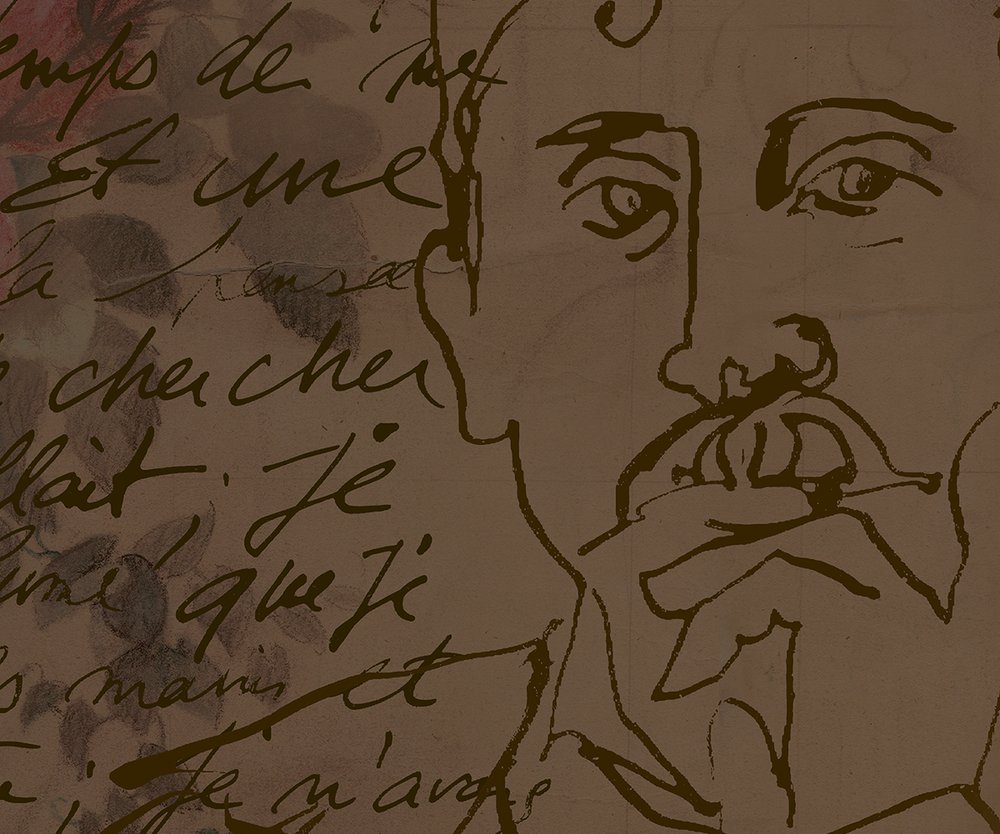 temps de me
Et une
la pensée
chercher
llait, je
que je
mains et
; Je n'avais